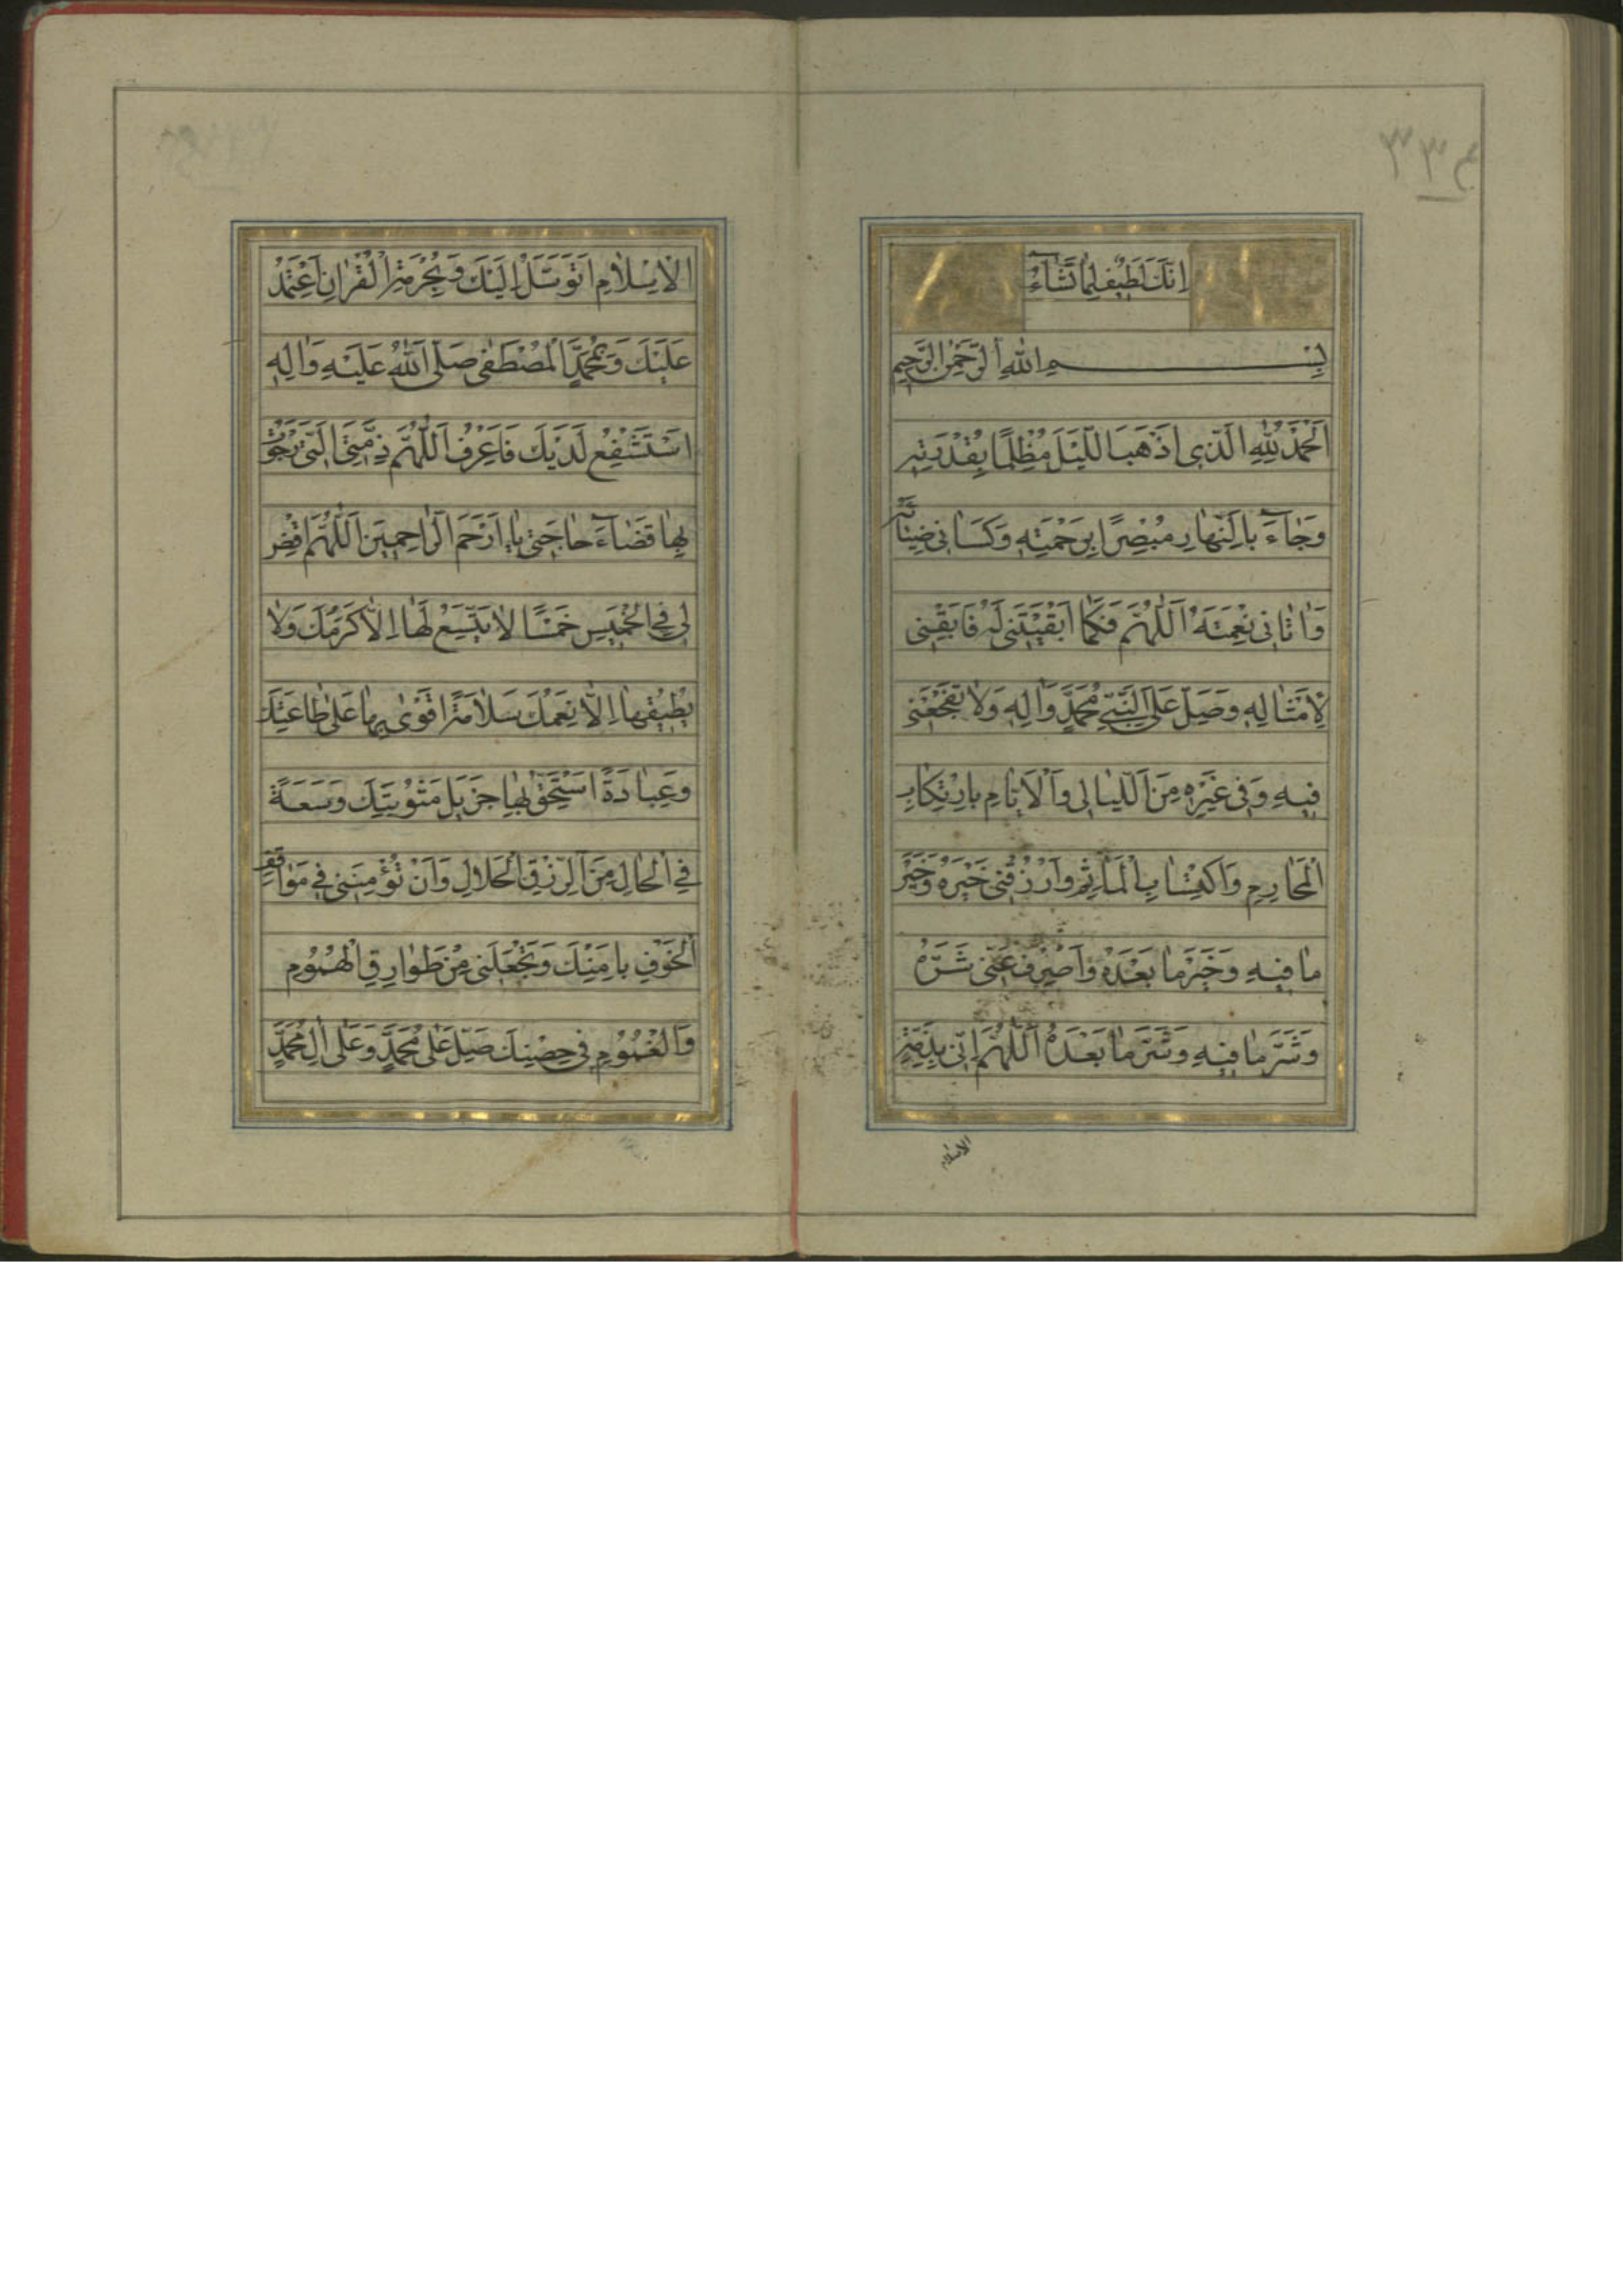 ٣٣٤
اِنَّكَ لَطيٖفٌ لِمٰا تَشٰآءُ
بِسْمِ اللّٰهِ الرَّحْمٰنِ الرَّحيٖمِ
اَلْحَمْدُ لِلّٰهِ الَّذٖى اَذْهَبَ اللَّيْلَ مُظْلِمًا بِقُدْرَتِهٖ
وَجٰآءَ بِالنَّهٰارِ مُبْصِرًا بِرَحْمَتِهٖ وَكَسٰانٖى ضِيٰآئَهُ
وَاٰتٰانٖى نِعْمَتَهُ اَللّٰهُمَّ فَكَمٰا اَبْقَيْتَنٖى لَهُ فَاَبْقِنٖى
لِاَمْثٰالِهٖ وَصَلِّ عَلَى النَّبِىِّ مُحَمَّدٍ وَاٰلِهٖ وَلاٰ تَفْجَعْنٖى
فٖيهِ وَفٖى غَيْرِهٖ مِنَ اللَّيٰالٖى وَالْاَيّٰامِ بِارْتِكٰابِ
الْمَحٰارِمِ وَاكْتِسٰابِ الْمَاٰثِمِ وَارْزُقْنٖى خَيْرَهُ وَخَيْرَ
مٰا فٖيهِ وَخَيْرَ مٰا بَعْدَهُ وَاصْرِفْ عَنّٖى شَرَّهُ
وَشَرَّ مٰا فٖيهِ وَشَرَّ مٰا بَعْدَهُ اَللّٰهُمَّ اِنّٖى بِذِمَّةِ
الاسلام
الْاِسْلاٰمِ اَتَوَسَّلُ اِلَيْكَ وَبِحُرْمَةِ الْقُرْاٰنِ اَعْتَمِدُ
عَلَيْكَ وَبِمُحَمَّدٍ الْمُصْطَفٰى صَلَّى اللّٰهُ عَلَيْهِ وَاٰلِهٖ
اَسْتَشْفِعُ لَدَيْكَ فَاعْرِفِ اللّٰهُمَّ ذِمَّتِىَ الَّتٖى رَجَوْتُ
بِهٰا قَضٰآءَ حٰاجَتٖى يٰا اَرْحَمَ الرّٰاحِمٖينَ اَللّٰهُمَّ اقْضِ
لٖى فِى الْخَمٖيسِ خَمْسًا لاٰ يَتَّسِعُ لَهٰا اِلاّٰ كَرَمُكَ وَلاٰ
يُطٖيقُهٰا اِلاّٰ نِعَمُكَ سَلاٰمَةً اَقْوٰى بِهٰا عَلٰى طٰاعَتِكَ
وَعِبٰادَةً اَسْتَحِقُّ بِهٰا جَزٖيلَ مَثُوبَتِكَ وَسَعَةً
فِى الْحٰالِ مِنَ الرِّزْقِ الْحَلاٰلِ وَاَنْ تُؤْمِنَنٖى فٖى مَوٰاقِفِ
الْخَوْفِ بِاَمْنِكَ وَتَجْعَلَنٖى مِنْ طَوٰارِقِ الْهُمُومِ
وَالْغُمُومِ فٖى حِصْنِكَ صَلِّ عَلٰى مُحَمَّدٍ وَعَلٰى اٰلِ مُحَمَّدٍ